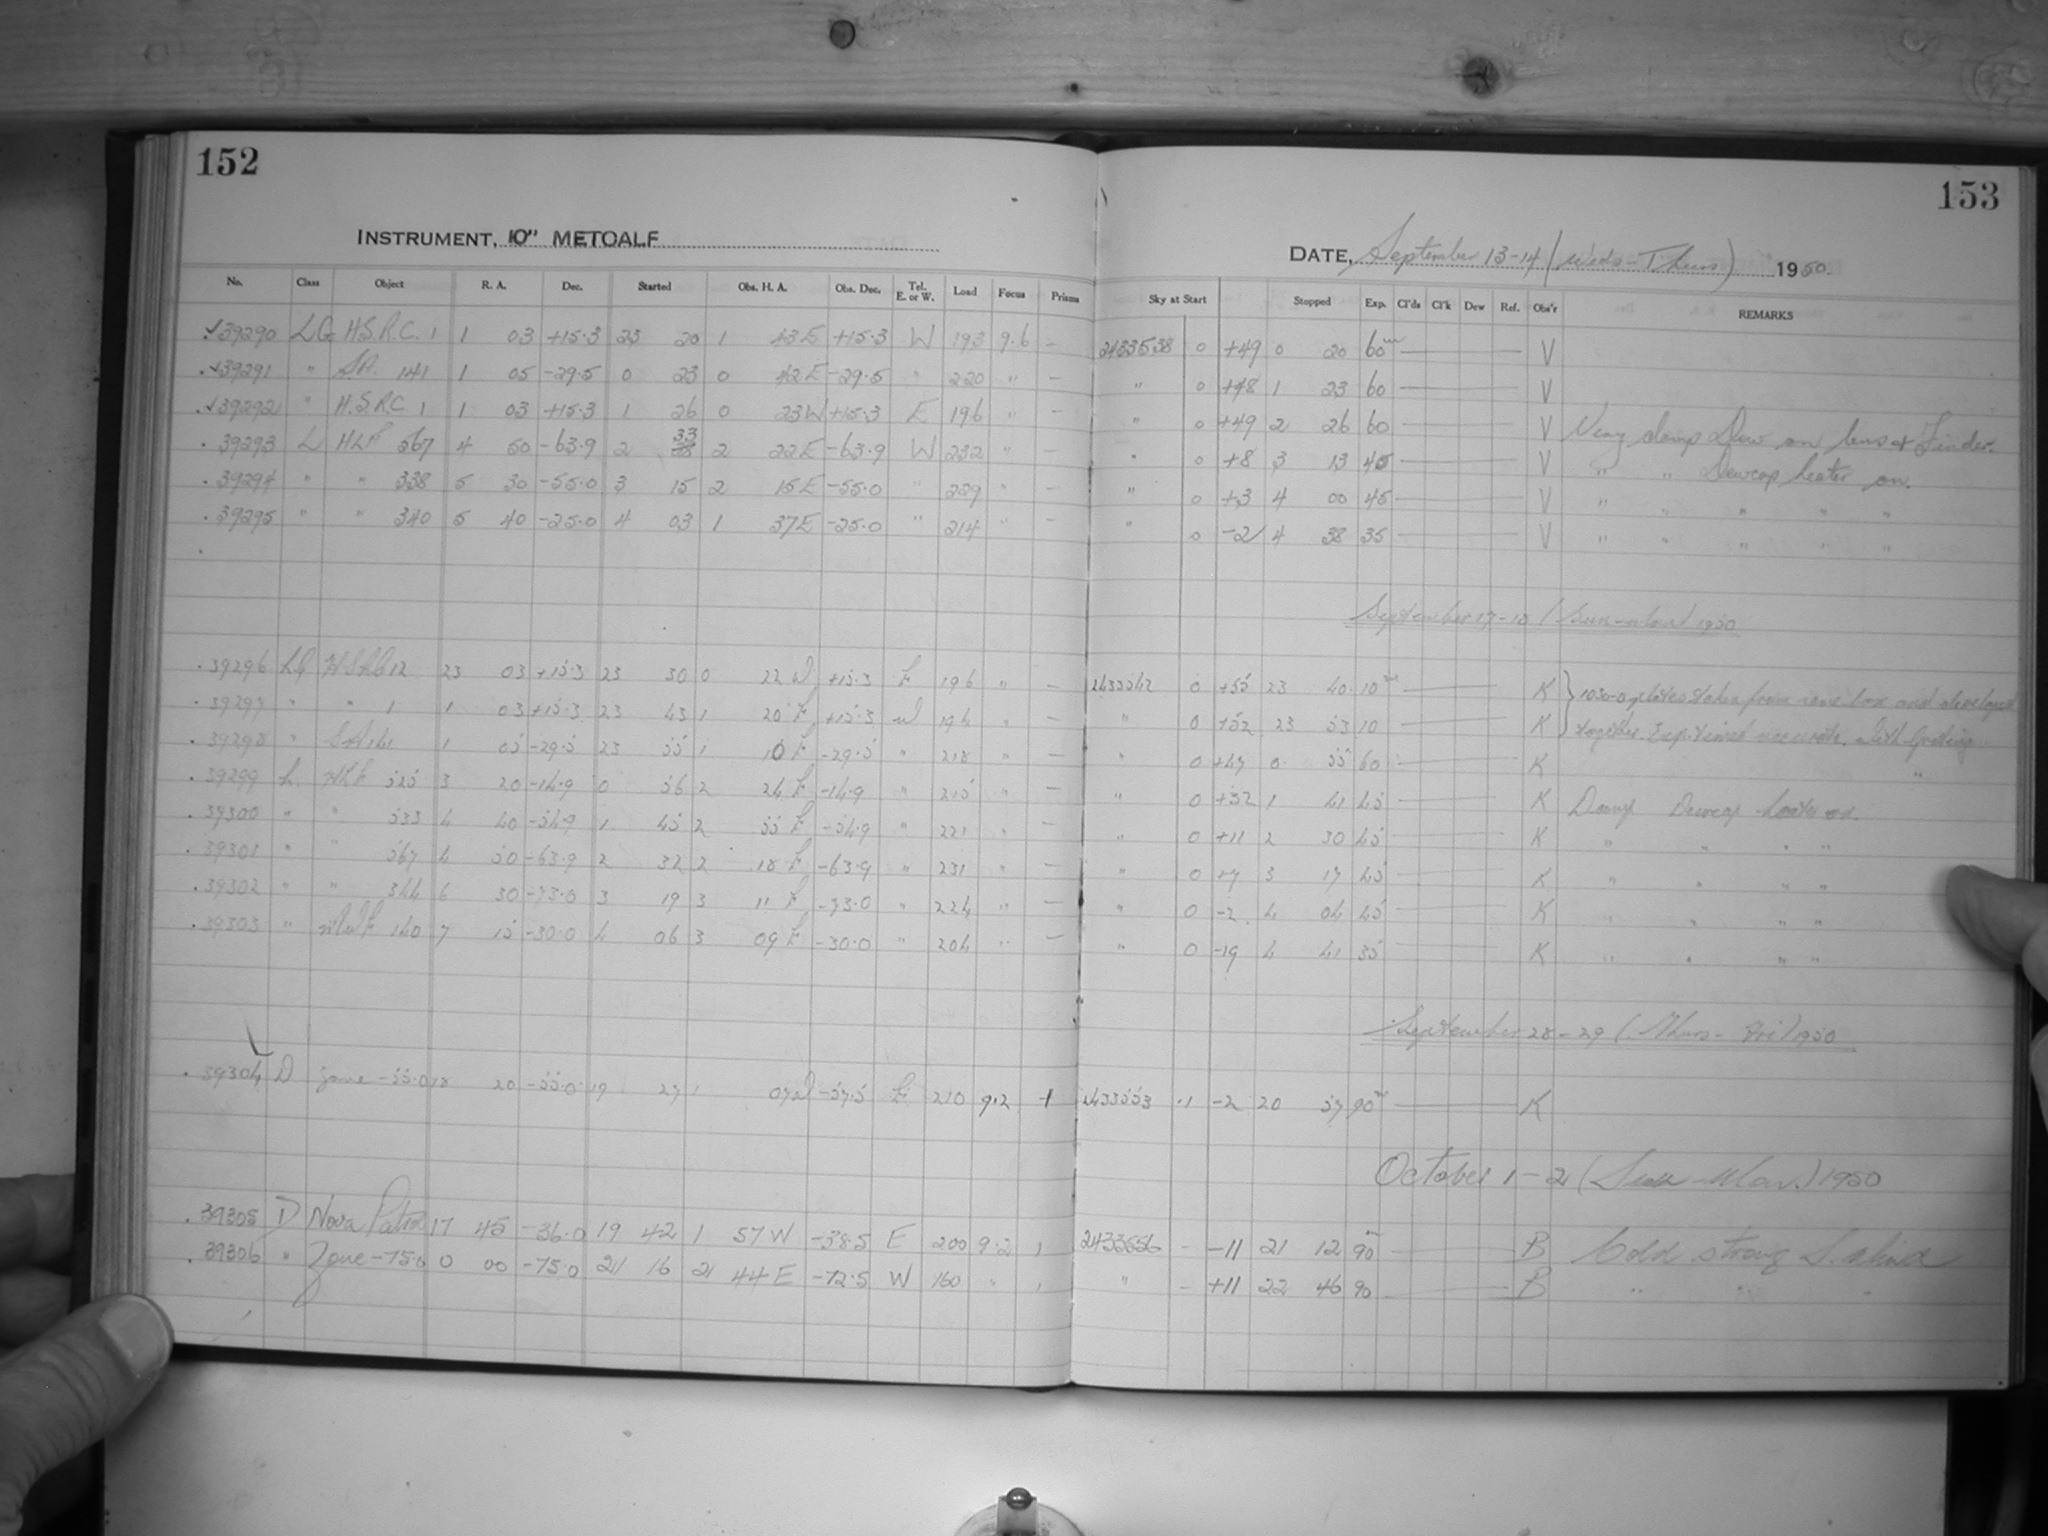 152
153
INSTRUMENT, 10" METCALF
DATE, September 13-14 (Weds-Thurs) 1950.
No. Class Object R. A. Dec. Started Obs. H. A. Obs. Dec. Tel. E. or W. Load Focus Prisms Sky at Start Stopped Exp. Cl'ds Cl'k Dew Ref. Obs'r REMARKS
39290 LG H.S.R.C. 1 1 03 +15.3 23 20 1 43 E +15.3 W 193 9.6 - 2433538 0 +49 0 20 60m V
39291 " S.A. 141 1 05 -29.5 0 23 0 42 E -29.5 " 220 " - " 0 +48 1 23 60 V
39292 " H.S.R.C 1 1 03 +15.3 1 26 0 23 W +15.3 E 196 " - " 0 +49 2 26 60 V Very damp Dew on lens & Finder.
39293 L HLP 567 4 50 -63.9 2 33 2 22 E -63.9 W 232 " - " 0 +8 3 13 45 V " " Dewcap heater on.
39294 " " 338 5 30 -55.0 3 15 2 15 E -55.0 " 229 " - " 0 +3 4 00 45 V " " " " "
39295 " " 340 5 40 -25.0 4 03 1 37 E -25.0 " 214 " - " 0 -2 4 38 35 V " " " " "
September 17-18 (Sun-Mon) 1950
39296 LG 12 23 03 +15.3 23 30 0 22 W +15.3 E 196 " - 2433542 0 +55 23 40 10m K } 103a-O plates taken from same box and developed
39297 " " 1 1 03 +15.3 23 43 1 20 E +15.3 W 194 " - " 0 +52 23 53 10 K } together. Exp. times accurate. With Grating
39298 " SA 141 1 05 -29.5 23 55 1 10 E -29.5 " 218 " - " 0 +47 0 55 60 K "
39299 L HLP 525 3 20 -14.9 0 56 2 24 E -14.9 " 215 " - " 0 +32 1 41 45 K Damp Dewcap heater on.
39300 " " 533 4 40 -54.9 1 45 2 55 E -54.9 " 221 " - " 0 +11 2 30 45 K " " " "
39301 " " 567 4 50 -63.9 2 32 2 18 E -63.9 " 231 " - " 0 +7 3 17 45 K " " " "
39302 " " 344 6 30 -73.0 3 19 3 11 E -73.0 " 224 " - " 0 -2 4 04 45 K " " " "
39303 " 140 7 15 -30.0 4 06 3 09 E -30.0 " 204 " - " 0 -19 4 41 35 K " " " "
September 28-29 (Thurs-Fri) 1950
39304 D Zone -55.0 18 20 -55.0 19 27 1 07 W -57.5 E 210 9.2 1 2433553 .1 -2 20 57 90m K
October 1-2 (Sun-Mon.) 1950
39305 D Nova Patrol 17 45 -36.0 19 42 1 57 W -38.5 E 200 9.2 1 2433556 - -11 21 12 90m B Cold strong S. wind
39306 " Zone -75.0 0 00 -75.0 21 16 2 44 E -72.5 W 160 " 1 " - +11 22 46 90 B " " "